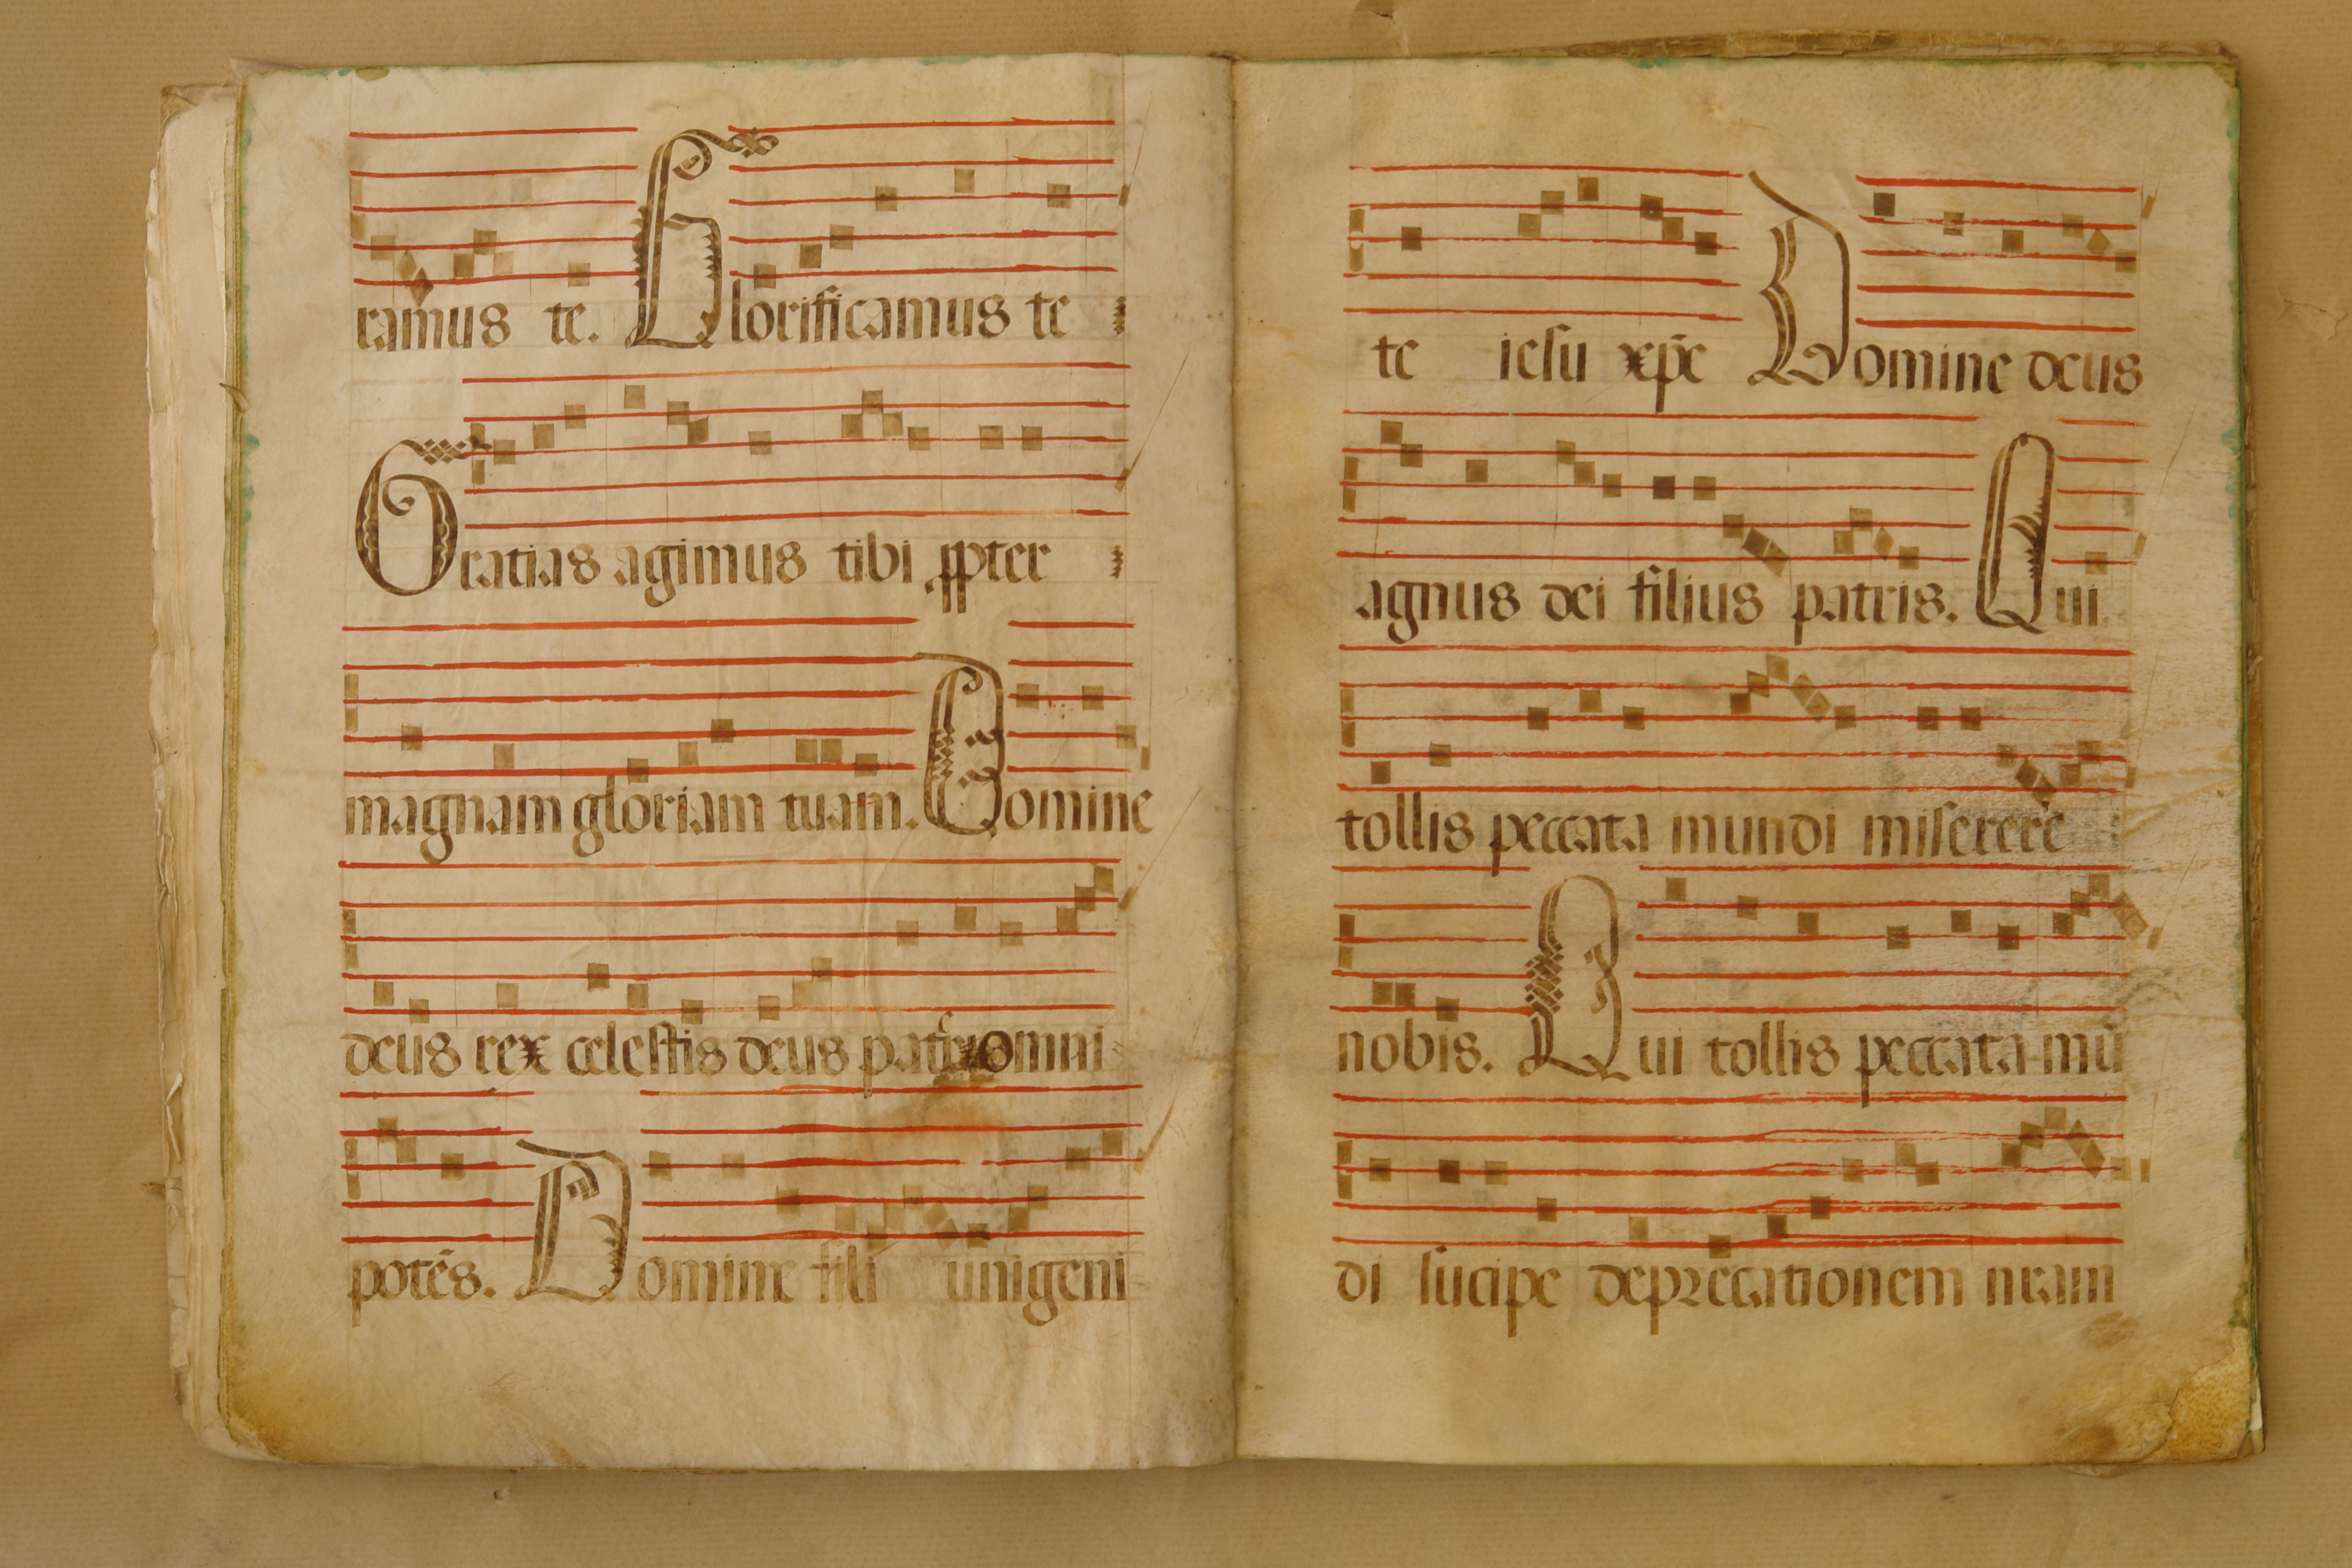 ramus te. Glorificamus te
Gratias agimus tibi ꝓpter
magnam gloriam tuam. Domine
deus rex celestis deus patris omni
potēs. Domine fili unigeni
te iesu xp̄e Domine deus
agnus dei filius patris. Qui
tollis peccata mundi miserere
nobis. Qui tollis peccata mū
di sucipe deprecationem nram